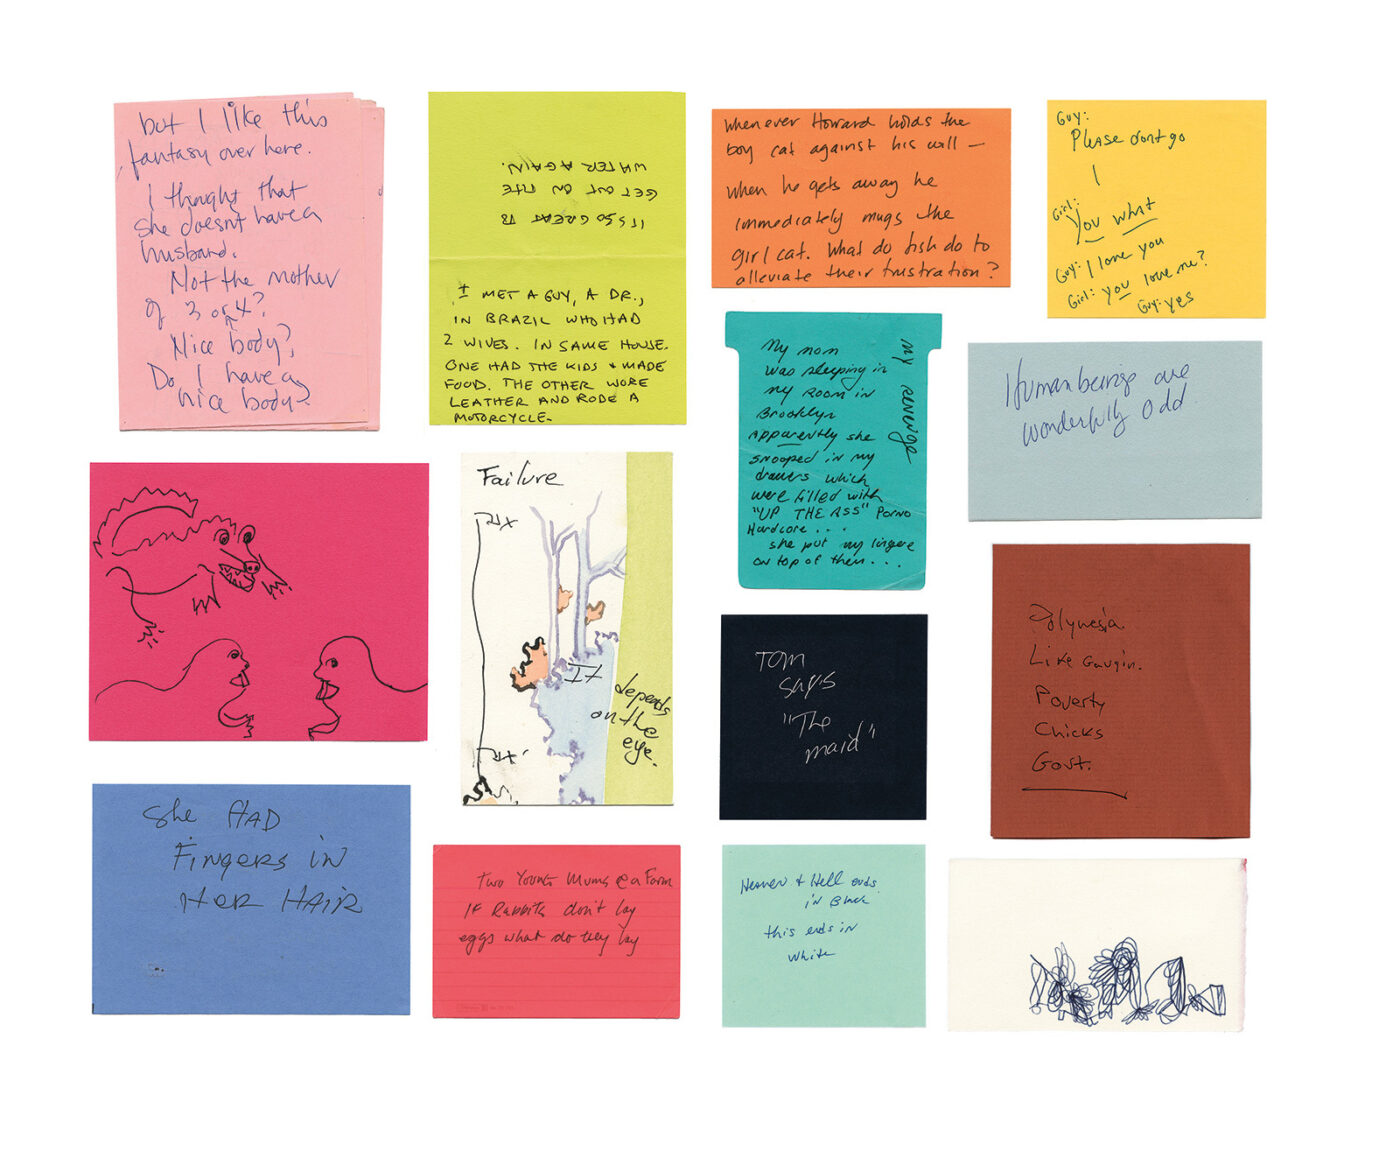 but I like this
fantasy over here.
I thought that
she doesn't have a
husband.
Not the mother
of 3 or 4?
Nice body?,
Do I have a
nice body?
IT'S SO GREAT TO
GET OUT ON THE
WATER AGAIN.
I MET A GUY, A DR.,
IN BRAZIL WHO HAD
2 WIVES. IN SAME HOUSE.
ONE HAD THE KIDS + MADE
FOOD. THE OTHER WORE
LEATHER AND RODE A
MOTORCYCLE.
whenever Howard holds the
boy cat against his will —
when he gets away he
immediately mugs the
girl cat. What do fish do to
alleviate their frustration?
Guy:
Please dont go
I
Girl:
You what
Guy: I love you
Girl: you love me?
Guy: yes
My mom
was sleeping in
my room in
Brooklyn
Apparently she
snooped in my
drawers which
were filled with
"UP THE ASS" Porno
Hardcore . . .
she put my lingere
on top of them . . .
my revenge
Human beings are
wonderfully odd
Failure
It
depends
on the
eye.
TOM
says
"The
maid"
Polynesia.
Like Gaugin.
Poverty
Chicks
Govt.
She HAD
Fingers in
HER HAIR
Two Young Mums @ a Farm
If Rabbits don't lay
eggs what do they lay
Heaven + Hell ends
in Black
this ends in
white